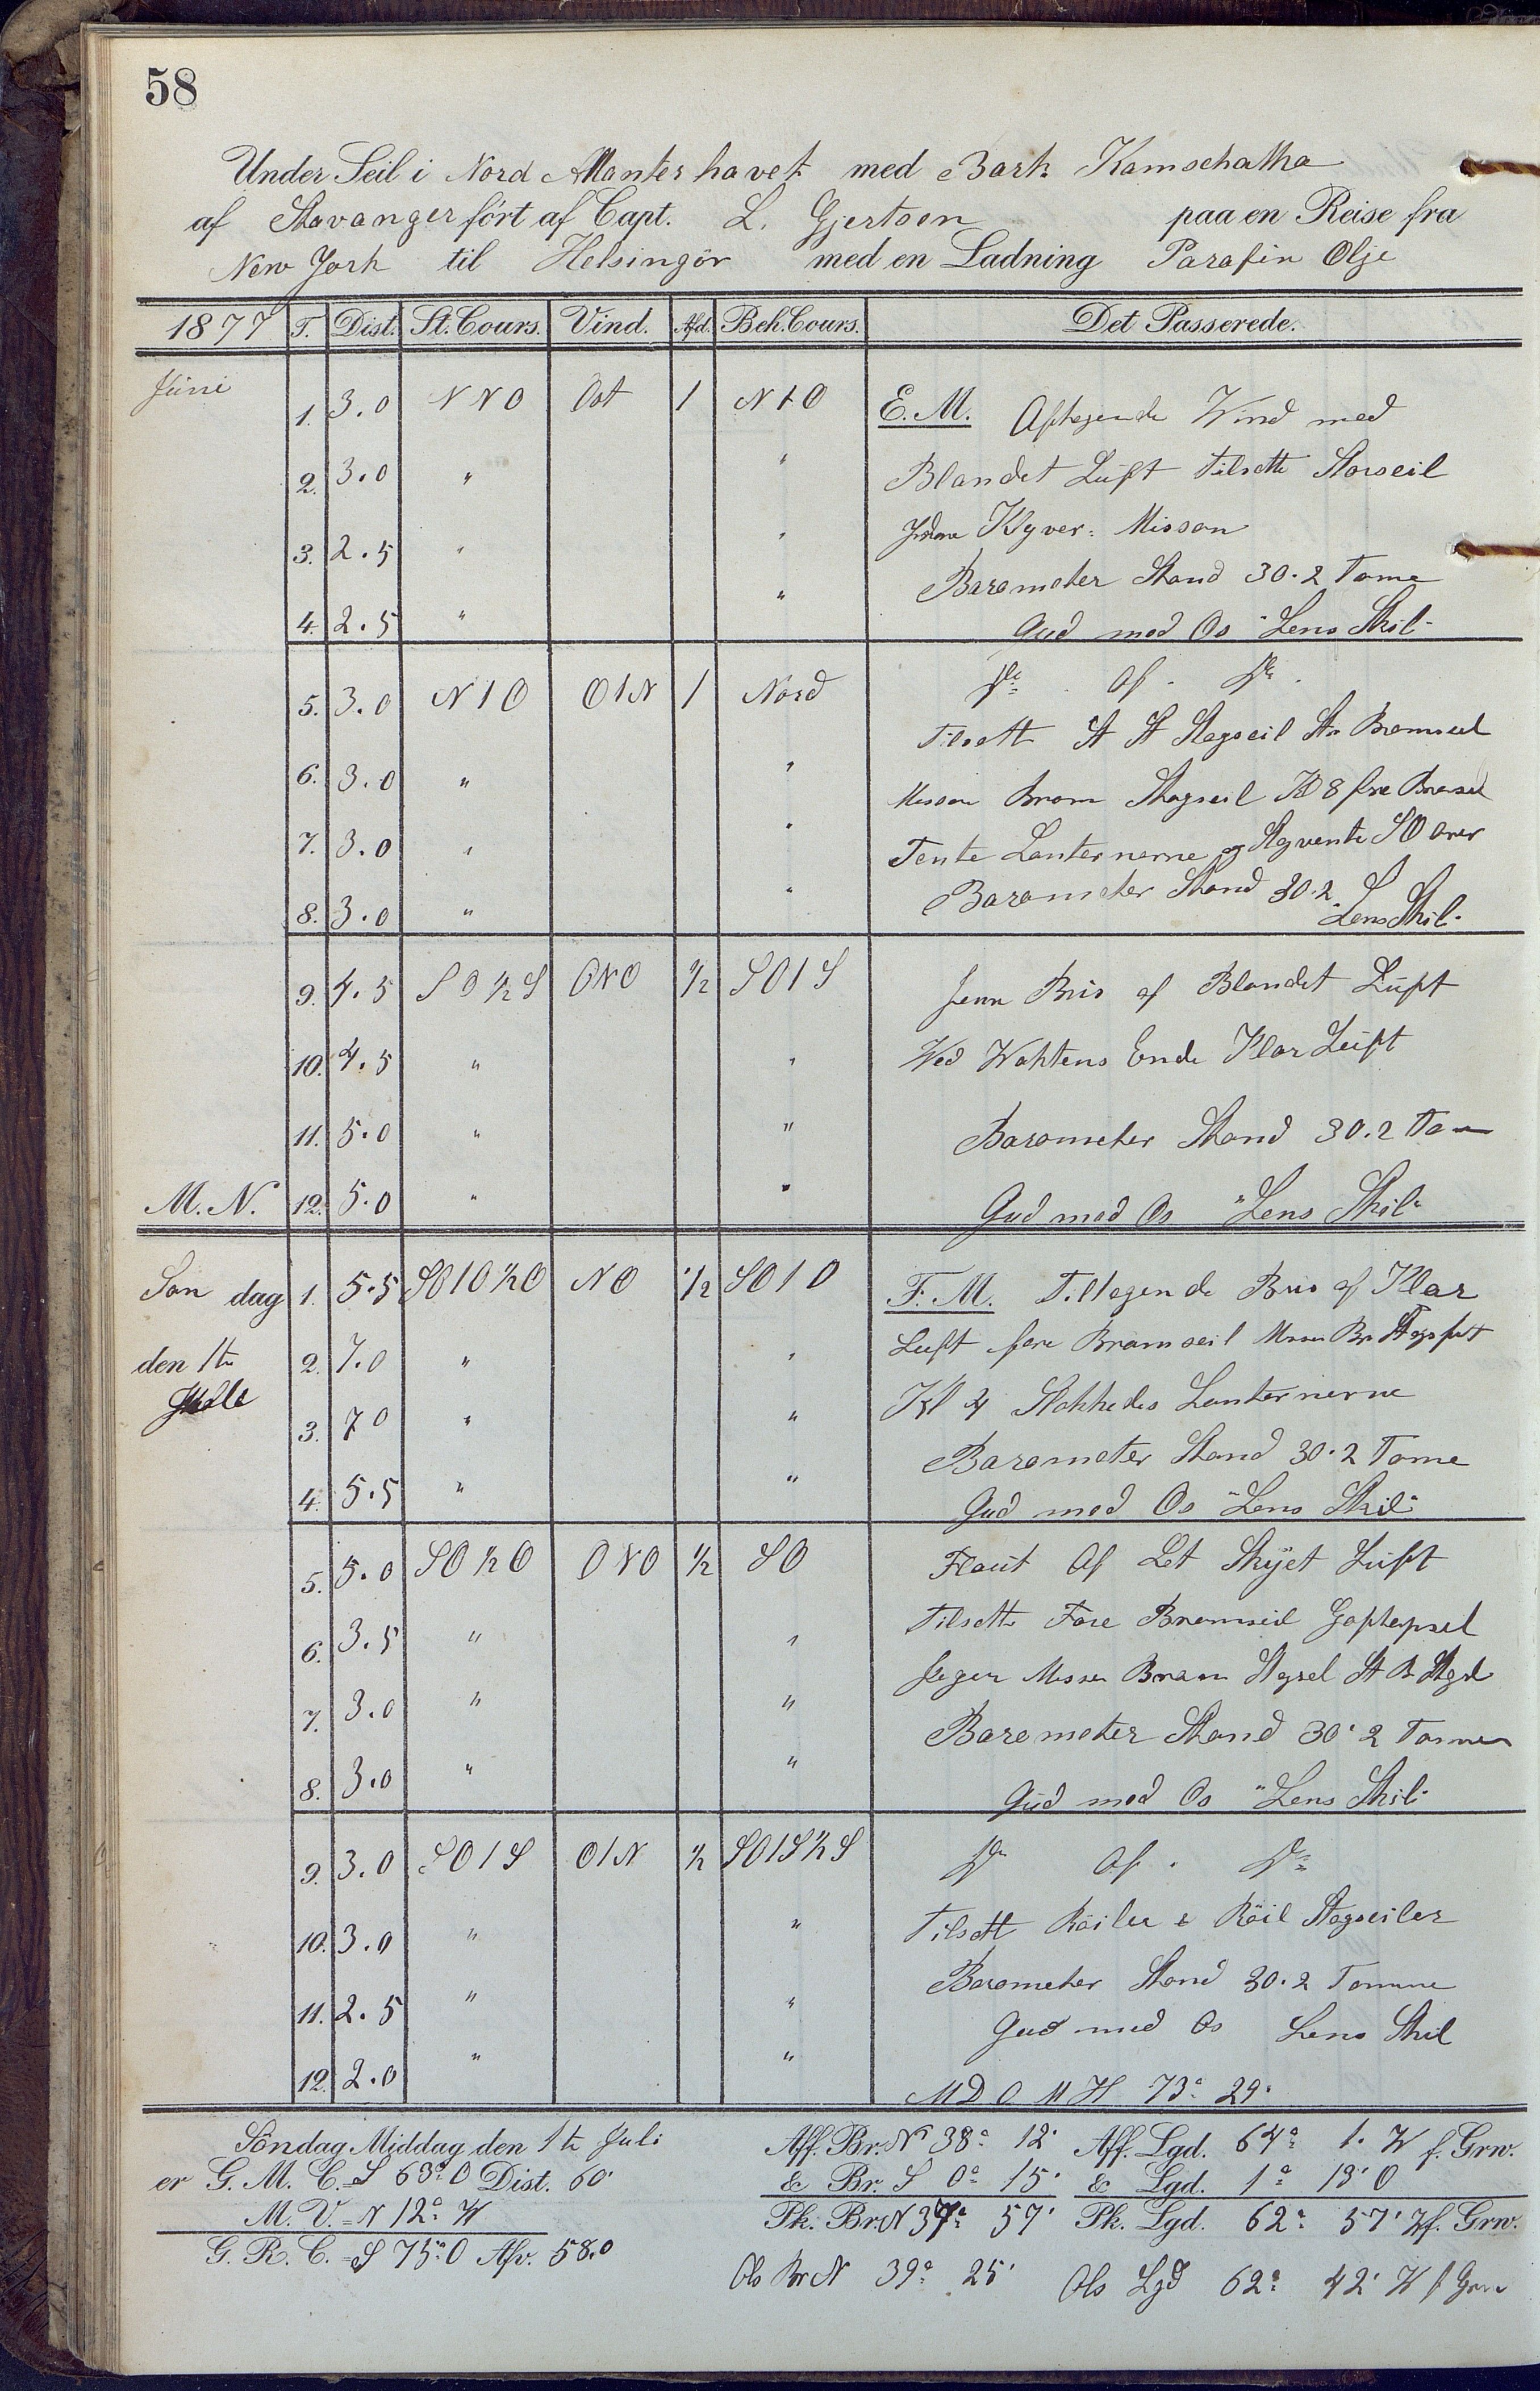 58
Under Seil i Nord Atlanterhavet med Bark Kamschatka
af Stavanger ført af Capt. L. Gjertsen paa en Reise fra
New York til Helsingör med en Ladning Parafin Olje
1877 T. Dist. St. Cours. Vind. Afd. Beh. Cours. Det Passerede.
Juni 1. 3.0 NNO Ost 1 N1O E.M. Aftagende Wind med
2. 3.0 " " Blandet Luft Tilsatte Storseil
3. 2.5 " " Klyver Missan
4. 2.5 " " Barometer Stand 30.2 Tome
Gud med Os "Lens Skil"
5. 3.0 N1O O1N 1 Nord Do Af Do
6. 3.0 " " Tilsatt St St Stagseil St Bramseil
7. 3.0 " " Missan Bram Stagseil Kl 8 fore Bramseil
Tente Lanternerne og Stagvente SO over
8. 3.0 " " Barometer Stand 30.2
Lens Skil
9. 4.5 SO½S ONO ½ SO1S Jevn Bris af Blandet Luft
10. 4.5 " " Ved Waktens Ende Klar Luft
11. 5.0 " " Barometer Stand 30.2 Tom
M.N. 12. 5.0 " " Gud med Os "Lens Skil"
Søndag 1. 5.5 SO1O½O NO ½ SO1O F.M. Tiltagende Bris af Klar
den 1te 2. 7.0 " " Luft fore Bramseil
3. 7.0 " " Kl 4 Slokkedes Lanternerne
4. 5.5 " " Barometer Stand 30.2 Tome
Gud med Os "Lens Skil"
5. 5.0 SO½O ONO ½ SO Flaut Af Let Skÿet Luft
6. 3.5 " " Tilsatte Fore Bramseil Gaftopseil
7. 3.0 " " Jager Missan Bram
Barometer Stand 30.2 Tommer
8. 3.0 " " Gud med Os "Lens Skil"
9. 3.0 SO1S O1N ½ SO1S½S Do Af Do
10. 3.0 " " Tilsatt Röiler & Röil Stagseiler
11. 2.5 " " Barometer Stand 30.2 Tomme
Gud med Os Lens Skil
12. 2.0 " " M D O M H 73° 29'
Søndag Middag den 1te Juli
er G. M. C. = S 63° O Dist. 60'
M. V. = N 12° W
G. R. C. = S 75° O Afv. 58.0
Aff. Br. N 38° 12' Aff. Lgd. 64° 1' W f. Grw.
& Br. S 0° 15' & Lgd. 1° 13' O
Pk. Br. N 37° 57' Pk. Lgd. 62° 57' W f. Grw.
Obs Br N 39° 25' Obs Lgd 62° 42' W f Grw